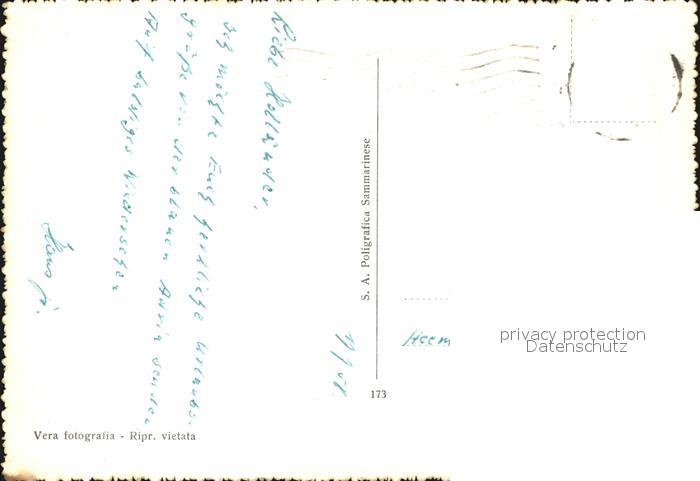 Liebe Holländer,
ich möchte Euch herzliche Urlaubs-
grüße von der blauen Adria senden
Auf baldiges Wiedersehen
Hans jr.
S. A. Poligrafica Sammarinese
Heem
privacy protection
Datenschutz
173
Vera fotografia - Ripr. vietata